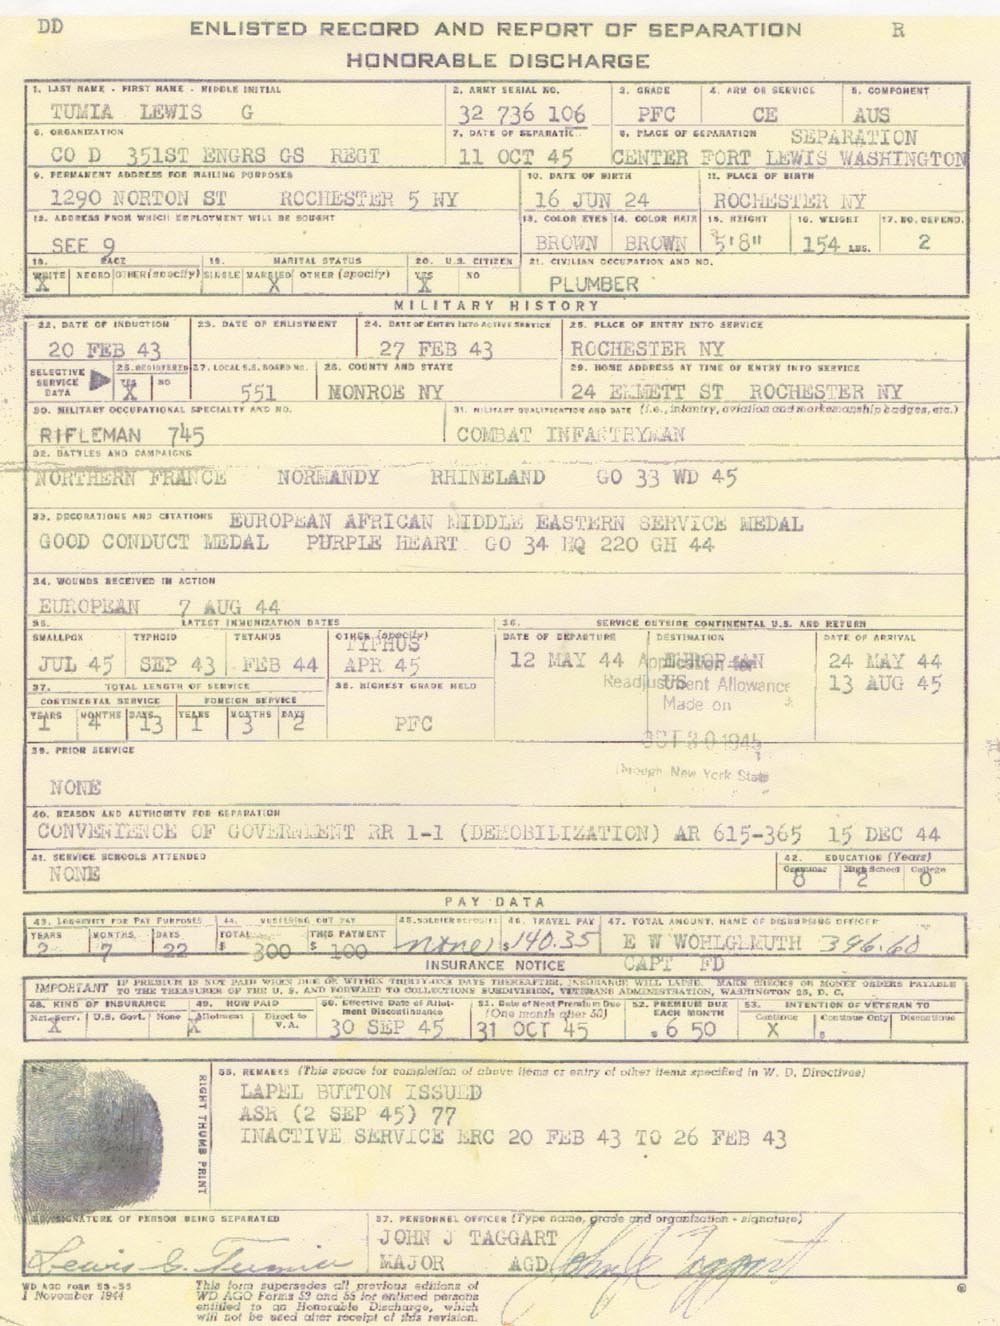 DD ENLISTED RECORD AND REPORT OF SEPARATION R
HONORABLE DISCHARGE
1. LAST NAME - FIRST NAME - MIDDLE INITIAL 2. ARMY SERIAL NO. 3. GRADE 4. ARM OR SERVICE 5. COMPONENT
TUMIA LEWIS G 32 736 106 PFC CE AUS
6. ORGANIZATION 7. DATE OF SEPARATION 8. PLACE OF SEPARATION SEPARATION
CO D 351ST ENGRS GS REGT 11 OCT 45 CENTER FORT LEWIS WASHINGTON
9. PERMANENT ADDRESS FOR MAILING PURPOSES 10. DATE OF BIRTH 11. PLACE OF BIRTH
1290 NORTON ST ROCHESTER 5 NY 16 JUN 24 ROCHESTER NY
12. ADDRESS FROM WHICH EMPLOYMENT WILL BE SOUGHT 13. COLOR EYES 14. COLOR HAIR 15. HEIGHT 16. WEIGHT 17. NO. DEPEND.
SEE 9 BROWN BROWN 5'8" 154 LBS. 2
18. RACE 19. MARITAL STATUS 20. U.S. CITIZEN 21. CIVILIAN OCCUPATION AND NO.
WHITE NEGRO OTHER (specify) SINGLE MARRIED OTHER (specify) YES NO
X X X PLUMBER
MILITARY HISTORY
22. DATE OF INDUCTION 23. DATE OF ENLISTMENT 24. DATE OF ENTRY INTO ACTIVE SERVICE 25. PLACE OF ENTRY INTO SERVICE
20 FEB 43 27 FEB 43 ROCHESTER NY
SELECTIVE SERVICE DATA 26. REGISTERED 27. LOCAL S.S. BOARD NO. 28. COUNTY AND STATE 29. HOME ADDRESS AT TIME OF ENTRY INTO SERVICE
YES NO
X 551 MONROE NY 24 EMMETT ST ROCHESTER NY
30. MILITARY OCCUPATIONAL SPECIALTY AND NO. 31. MILITARY QUALIFICATION AND DATE (i.e., infantry, aviation and marksmanship badges, etc.)
RIFLEMAN 745 COMBAT INFASTRYMAN
32. BATTLES AND CAMPAIGNS
NORTHERN FRANCE NORMANDY RHINELAND GO 33 WD 45
33. DECORATIONS AND CITATIONS EUROPEAN AFRICAN MIDDLE EASTERN SERVICE MEDAL
GOOD CONDUCT MEDAL PURPLE HEART GO 34 HQ 220 GH 44
34. WOUNDS RECEIVED IN ACTION
EUROPEAN 7 AUG 44
35. LATEST IMMUNIZATION DATES 36. SERVICE OUTSIDE CONTINENTAL U.S. AND RETURN
SMALLPOX TYPHOID TETANUS OTHER (specify) DATE OF DEPARTURE DESTINATION DATE OF ARRIVAL
TYPHUS
JUL 45 SEP 43 FEB 44 APR 45 12 MAY 44 EUROPEAN 24 MAY 44
US 13 AUG 45
Application for
Readjustment Allowance
Made on
OCT 30 1945
Through New York State
37. TOTAL LENGTH OF SERVICE 38. HIGHEST GRADE HELD
CONTINENTAL SERVICE FOREIGN SERVICE
YEARS MONTHS DAYS YEARS MONTHS DAYS
1 4 13 1 3 2 PFC
39. PRIOR SERVICE
NONE
40. REASON AND AUTHORITY FOR SEPARATION
CONVENIENCE OF GOVERNMENT RR 1-1 (DEMOBILIZATION) AR 615-365 15 DEC 44
41. SERVICE SCHOOLS ATTENDED 42. EDUCATION (Years)
NONE Grammar High School College
8 2 0
PAY DATA
43. LONGEVITY FOR PAY PURPOSES 44. MUSTERING OUT PAY 45. SOLDIER DEPOSITS 46. TRAVEL PAY 47. TOTAL AMOUNT, NAME OF DISBURSING OFFICER
YEARS MONTHS DAYS TOTAL THIS PAYMENT
2 7 22 $ 300 $ 100 none $140.35 E W WOHLGEMUTH 396.60
INSURANCE NOTICE CAPT FD
IMPORTANT IF PREMIUM IS NOT PAID WHEN DUE OR WITHIN THIRTY-ONE DAYS THEREAFTER, INSURANCE WILL LAPSE. MAKE CHECKS OR MONEY ORDERS PAYABLE
TO THE TREASURER OF THE U. S. AND FORWARD TO COLLECTIONS SUBDIVISION, VETERANS ADMINISTRATION, WASHINGTON 25, D. C.
48. KIND OF INSURANCE 49. HOW PAID 50. Effective Date of Allotment Discontinuance 51. Date of Next Premium Due (One month after 50) 52. PREMIUM DUE EACH MONTH 53. INTENTION OF VETERAN TO
Nat. Serv. U.S. Govt. None Allotment Direct to V.A. Continue Continue Only Discontinue
X X 30 SEP 45 31 OCT 45 $ 6 50 X $
RIGHT THUMB PRINT
55. REMARKS (This space for completion of above items or entry of other items specified in W. D. Directives)
LAPEL BUTTON ISSUED
ASR (2 SEP 45) 77
INACTIVE SERVICE ERC 20 FEB 43 TO 26 FEB 43
SIGNATURE OF PERSON BEING SEPARATED 57. PERSONNEL OFFICER (Type name, grade and organization - signature)
JOHN J TAGGART
Lewis G. Tumia MAJOR AGD John J Taggart
WD AGO FORM 53-55
1 November 1944
This form supersedes all previous editions of
WD AGO Forms 53 and 55 for enlisted persons
entitled to an Honorable Discharge, which
will not be used after receipt of this revision.